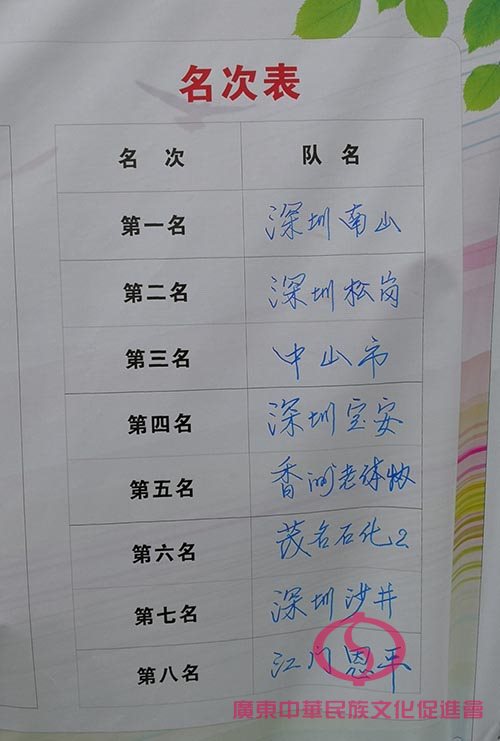 名次表
名次 队名
第一名 深圳南山
第二名 深圳松岗
第三名 中山市
第四名 深圳宝安
第五名 香洲老体协
第六名 茂名石化2
第七名 深圳沙井
第八名 江门恩平
廣東中華民族文化促進會